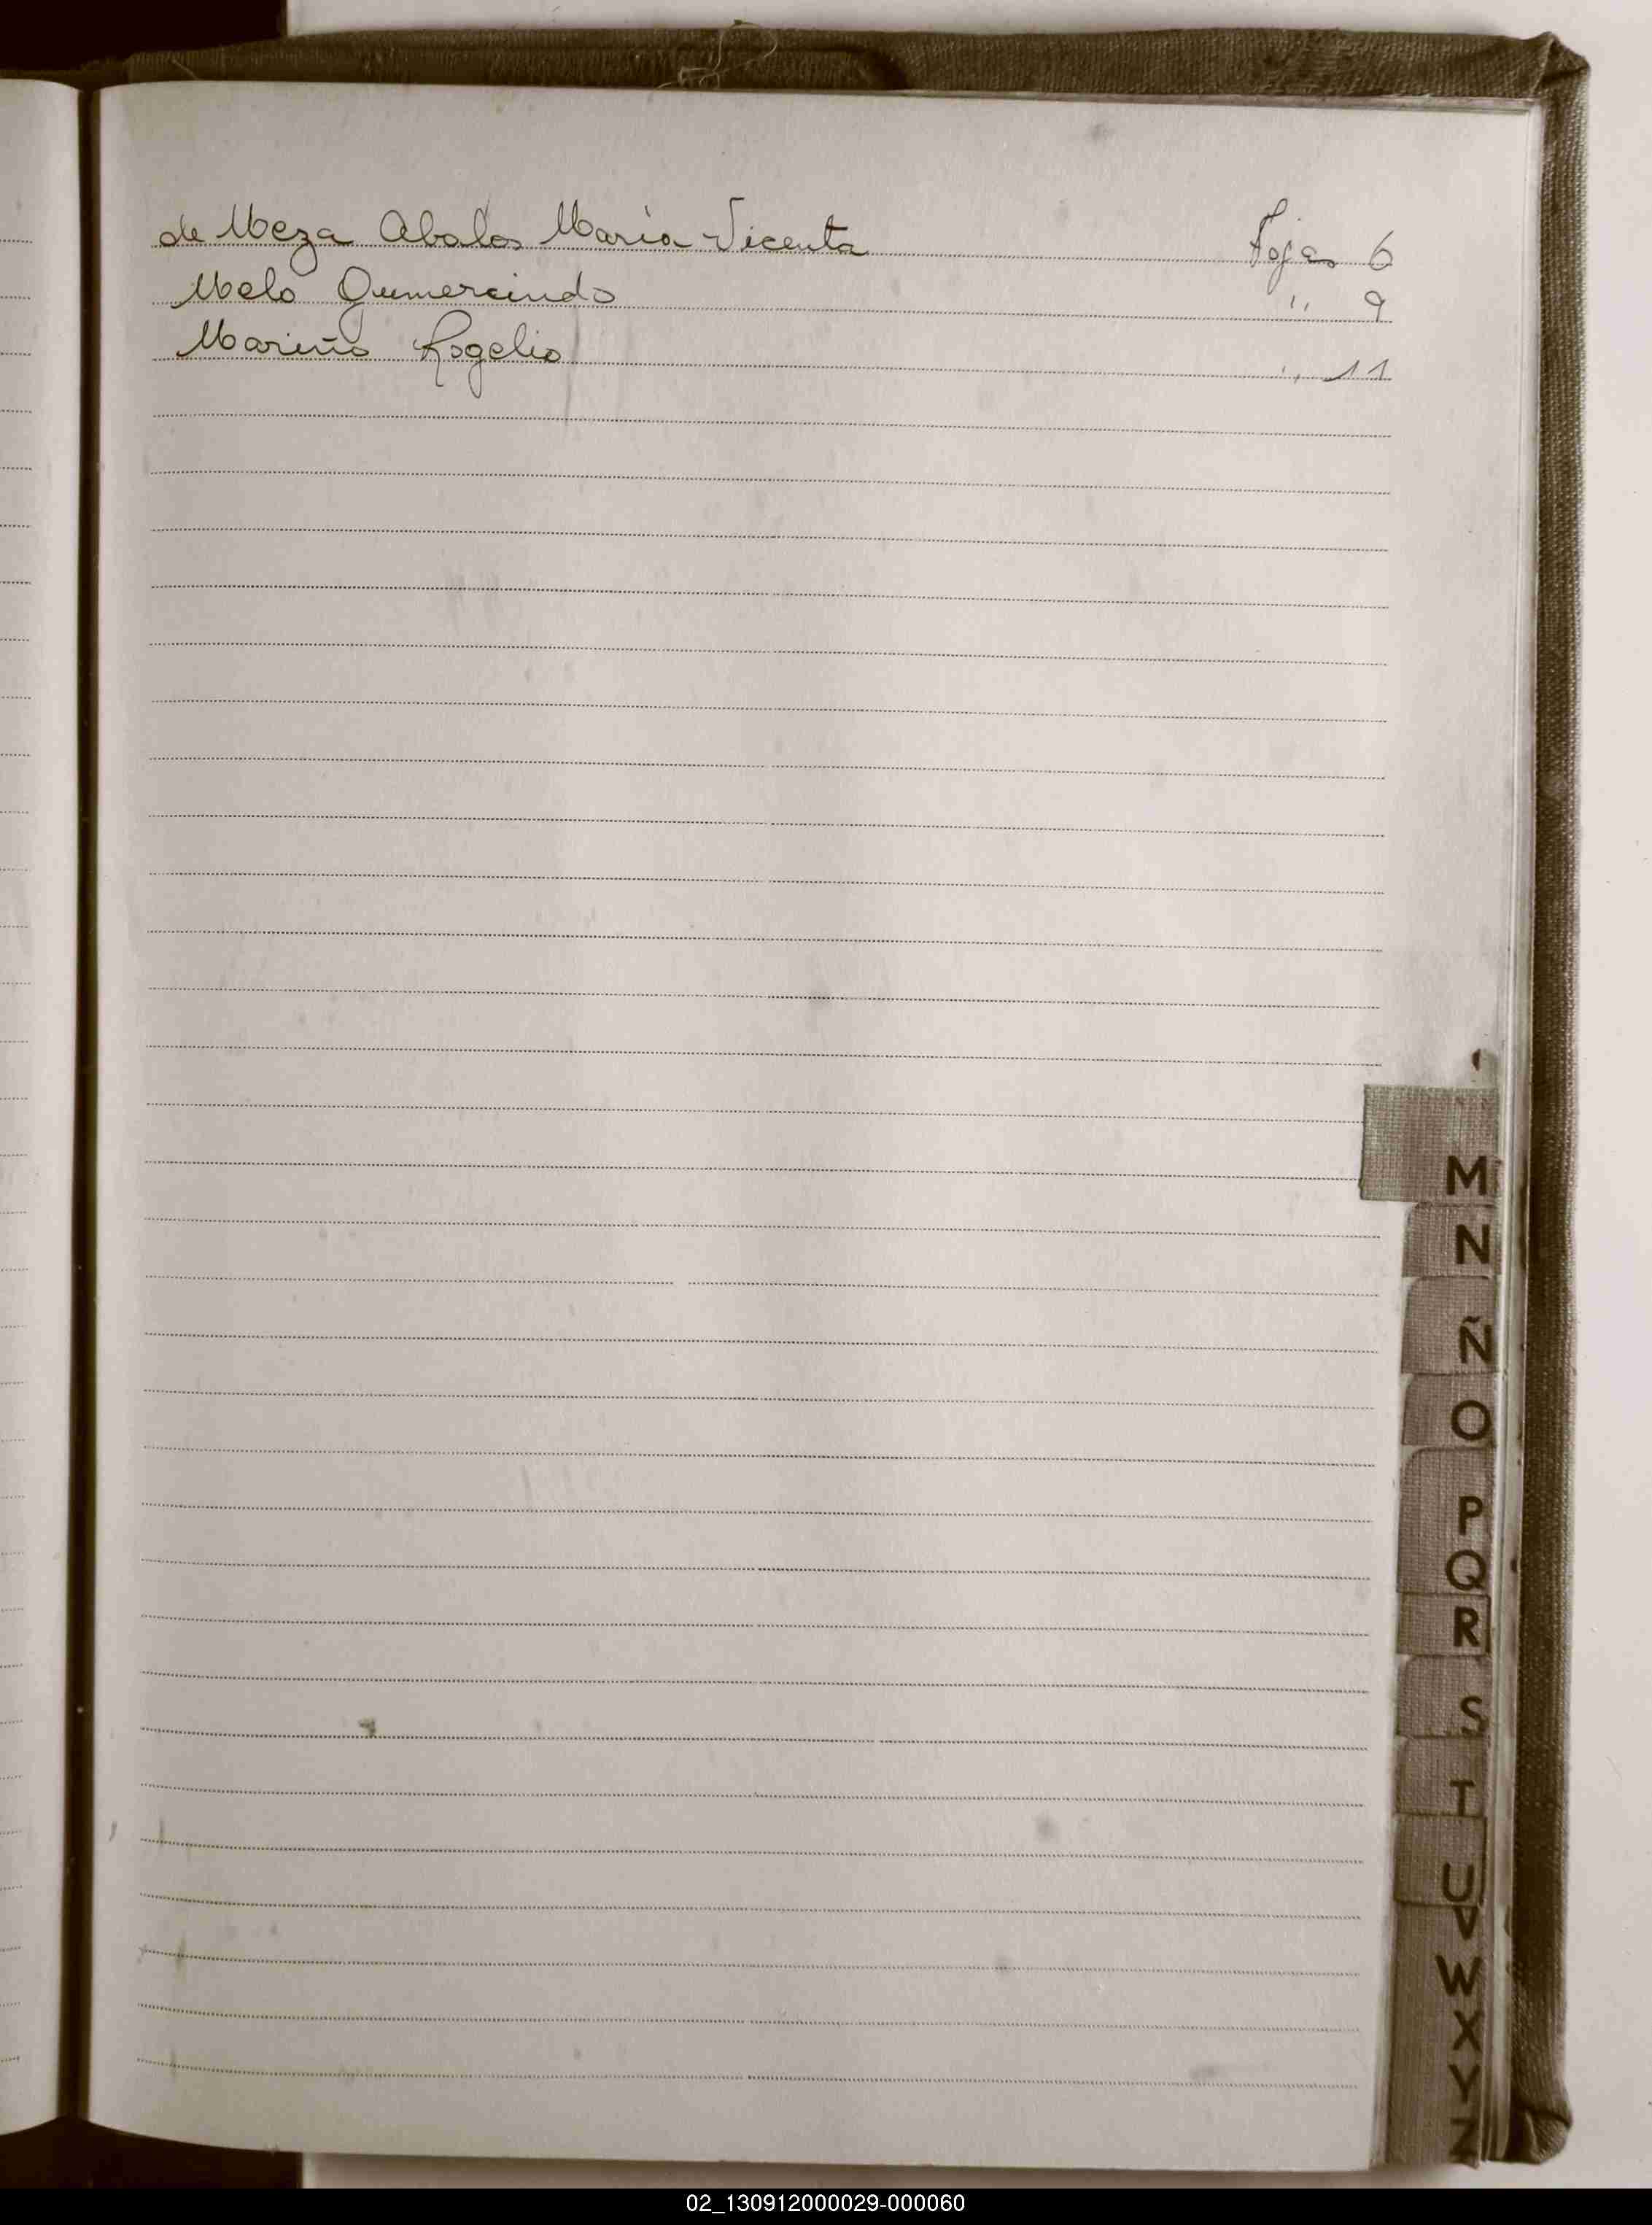 de Meza Abalos María Vicenta Fojas 6
Melo Gumercindo " 9
Mariño Rogelio " 11
M
N
Ñ
O
P
Q
R
S
T
U
V
W
X
Y
Z
02_130912000029-000060